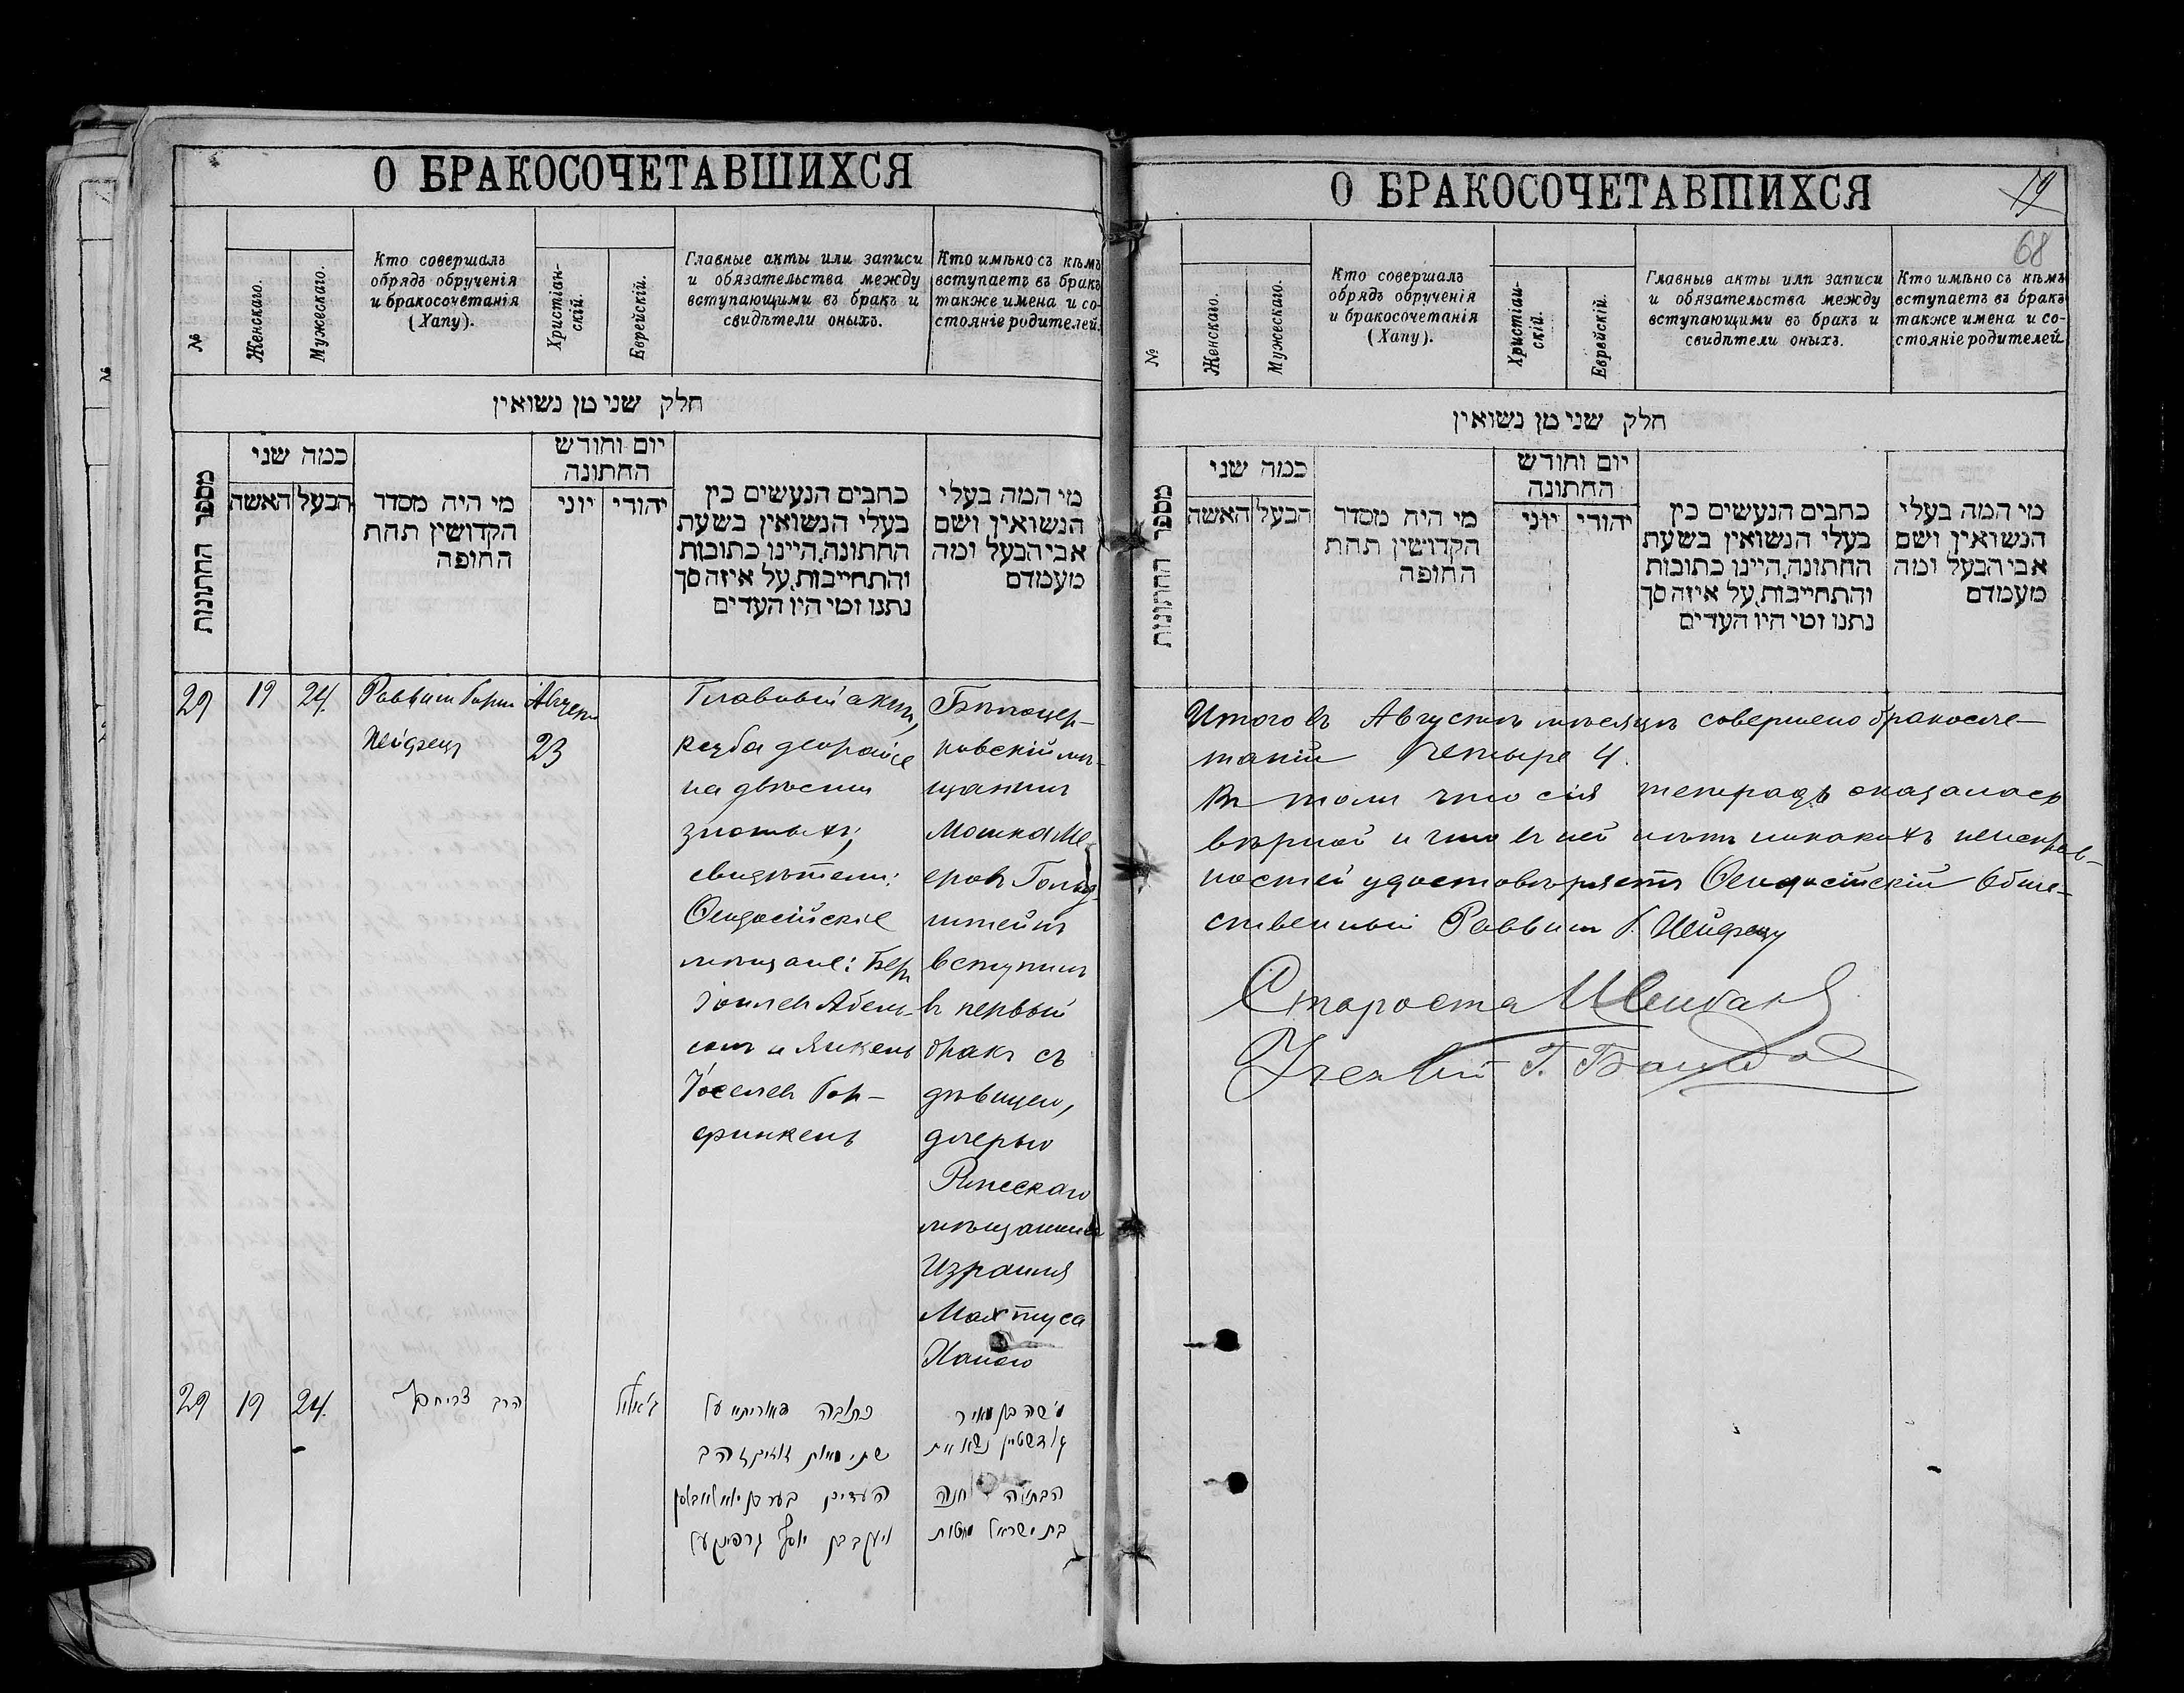 О БРАКОСОЧЕТАВШИХСЯ
№
Женскаго.
Мужескаго.
Кто совершалъ
обрядъ обрученія
и бракосочетанія
(Хапу).
Христіан-
скій.
Еврейскій.
Главные акты или записи
и обязательства между
вступающими въ бракъ и
свидѣтели оныхъ.
Кто имѣно съ кѣмъ
вступаетъ въ бракъ
также имена и со-
стояніе родителей.
חלק שני מן נשואין
מספר החתונות
כמה שני
האשה
הבעל
מי היה מסדר
הקדושין תחת
החופה
יום וחודש
החתונה
יוני
יהודי
כתבים הנעשים בין
בעלי הנשואין בשעת
החתונה, היינו כתובות
והתחייבות, על איזה סך
נתנו ומי היו העדים
מי המה בעלי
הנשואין ושם
אבי הבעל ומה
מעמדם
29
19
24.
Раввинъ
Августа
23
Главный актъ,
кецба деорайсе
на двѣсти
злотыхъ;
свидѣтели:
Ѳеодосійскіе
мѣщане: Беръ
и Янкель
финкель
Бѣлоцер-
ковскій мѣ-
щанинъ
Мошка Ме-
еровъ Гольд-
штейнъ
вступилъ
въ первый
бракъ съ
дѣвицею,
дочерью
мѣщанина
Израиля
Махтуса
Ханою
29
19
24.
הרב
כתובה דאורייתא על
שתי מאות זהב
העדים
יעקב בן יוסף
משה בן מאיר
גאלדשטיין נשא את
הבתולה חנה
בת ישראל
О БРАКОСОЧЕТАВШИХСЯ
19
68
№
Женскаго.
Мужескаго.
Кто совершалъ
обрядъ обрученія
и бракосочетанія
(Хапу).
Христіан-
скій.
Еврейскій.
Главные акты или записи
и обязательства между
вступающими въ бракъ и
свидѣтели оныхъ.
Кто имѣно съ кѣмъ
вступаетъ въ бракъ
также имена и со-
стояніе родителей.
חלק שני מן נשואין
מספר החתונות
כמה שני
האשה
הבעל
מי היה מסדר
הקדושין תחת
החופה
יום וחודש
החתונה
יוני
יהודי
כתבים הנעשים בין
בעלי הנשואין בשעת
החתונה, היינו כתובות
והתחייבות, על איזה סך
נתנו ומי היו העדים
מי המה בעלי
הנשואין ושם
אבי הבעל ומה
מעמדם
Итого въ Августѣ мѣсяцѣ совершено бракосоче-
таній Четыре 4.
Въ томъ что сія тетрадь оказалась
вѣрной и что въ ней нѣтъ никакихъ неисправ-
ностей удостовѣряетъ Ѳеодосійскій Обще-
ственный Раввинъ
Староста
Ученый Г.